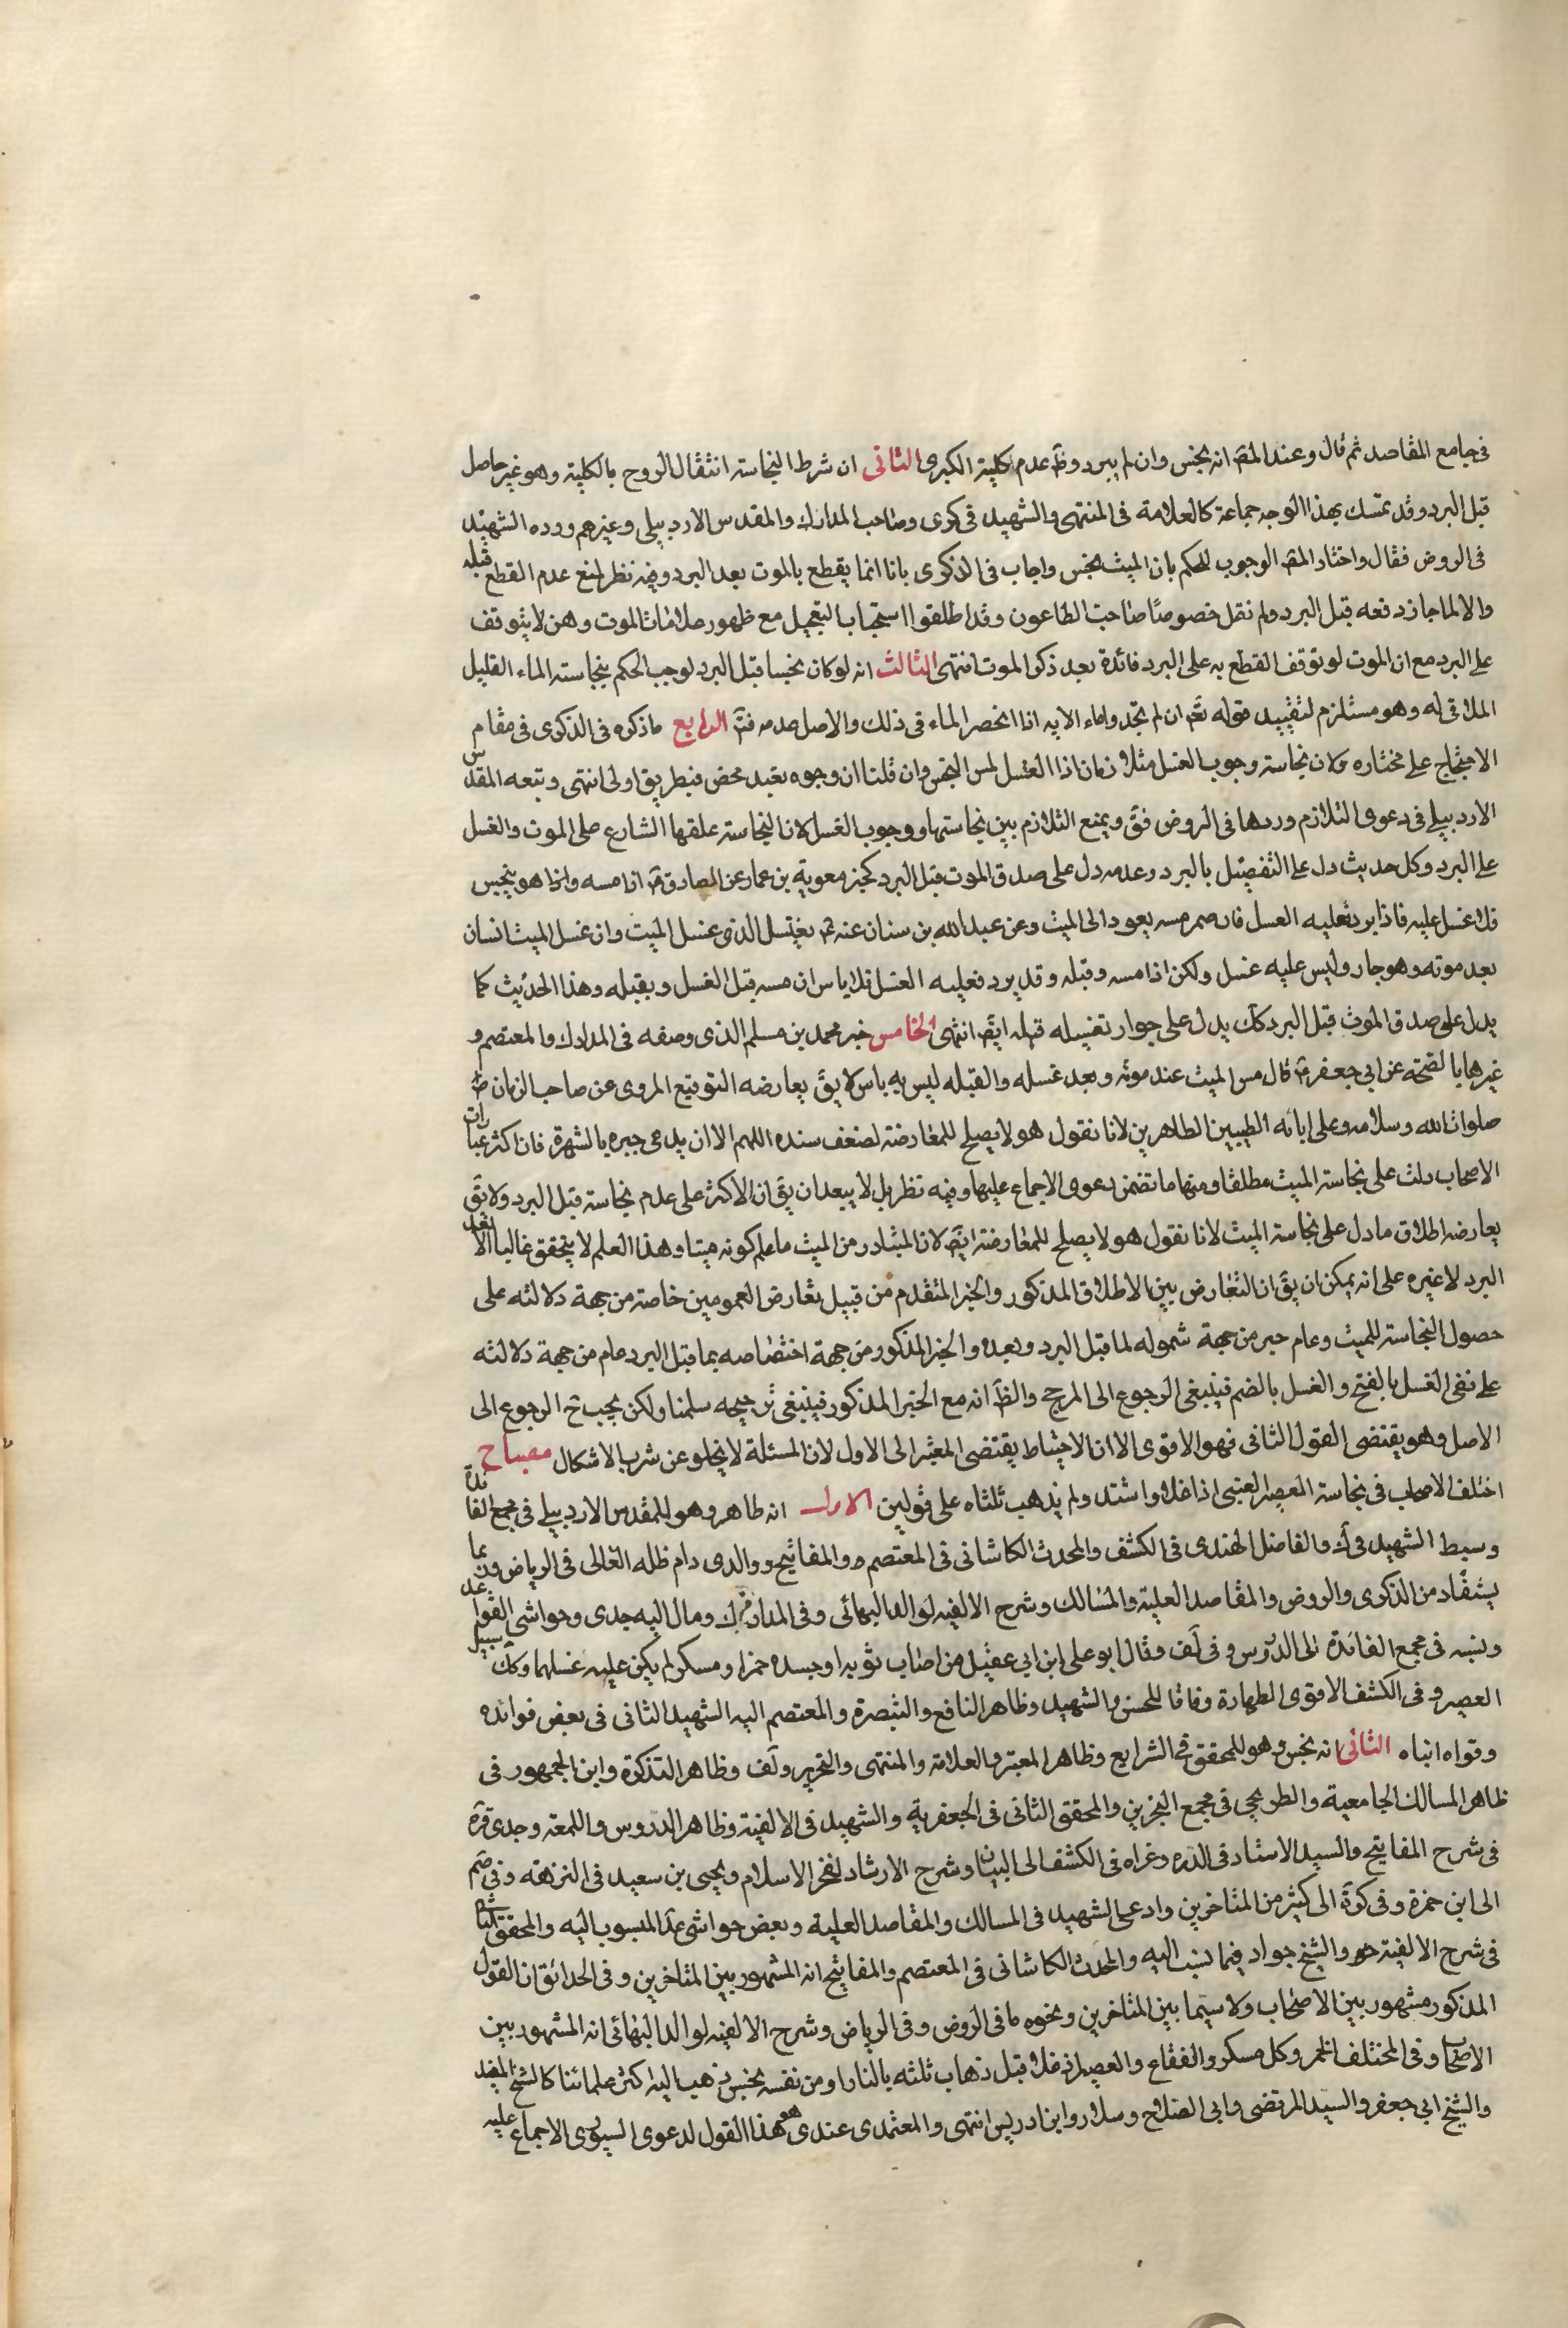 في جامع المقاصد ثم قال وعند المص انه ينجس وان لم يبرد وظ عدم كلية الكبرى الثاني ان شرط النجاسة انتقال الروح بالكلية وهو غير حاصل
قبل البرد وقد تمسك بهذا الوجه جماعة كالعلامة في المنتهى والشهيد في كرى وصاحب المدارك والمقدس الاردبيلي وغيرهم ورده الشهيد
في الروض فقال واختار المص الوجوب للحكم بان الميت نجس واجاب في الذكرى بانا انما يقطع بالموت بعد البرد وفيه نظر لمنع عدم القطع قبله
والا لما جاز دفعه قبل البرد ولم نقل خصوصا صاحب الطاعون وقد اطلقوا استحباب التعجيل مع ظهور علامات الموت وهن لا يتوقف
على البرد مع ان الموت لو توقف القطع به على البرد فائدة بعد ذكر الموت انتهى الثالث انه لو كان نجسا قبل البرد لوجب الحكم بنجاسته الماء القليل
الملاقي له وهو مستلزم لتقييد قوله تعم ان لم تجدوا ماء الايه اذا انحصر الماء في ذلك والاصل عدمه فتم الرابع ما ذكره في الذكرى في مقام
الاحتجاج على مختاره ولان نجاسته وجوب الغسل متلازمان اذا الغسل لمس النجس وان قلنا ان وجوه تعبد محض فبطريق اولى انتهى وتبعه المقدس
الاردبيلي في دعوى التلازم وردها في الروض فق ويمنع التلازم بين نجاستها ووجوب الغسل لان النجاسة علقها الشارع على الموت والغسل
على البرد وكل حديث دل على التفصيل بالبرد وعدمه دل على صدق الموت قبل البرد كخبر معوية بن عمار عن الصادق ع اذا مسه واذا هو بنجس
فلا غسل عليه فاذا برد فعليه الغسل فان ضمر مسه يعود الى الميت وعن عبد الله بن سنان عنه ع يغتسل الذي غسل الميت وان غسل الميت انسان
بعد موته وهو حار وليس عليه غسل ولكن اذا مسه وقبله وقد برد فعليه الغسل فلا باس ان مسه قبل الغسل ويقبله وهذا الحديث كما
يدل على صدق الموت قبل البرد كك يدل على جواز تغسيله قبله ايض انتهى الخامس خبر محمد بن مسلم الذي وصفه في المدارك والمعتصم و
غيرها بالصحة عن ابي جعفر ع قال مس الميت عند موته وبعد غسله والقبله ليس به باس لا يق يعارضه التوقيع المروي عن صاحب الزمان
صلوات الله وسلامه وعلى ابائه الطيبين الطاهرين لانا نقول هو لا يصلح للمعارضة لضعف سنده اللهم الا ان يدعى جبره بالشهرة فان اكثر عبارات
الاصحاب دلت على نجاسة الميت مطلقا ومنها ما تضمن دعوى الاجماع عليها وفيه نظر بل لا يبعد ان يق ان الاكثر على عدم نجاسته قبل البرد ولا يق
يعارضه اطلاق ما دل على نجاسة الميت لانا نقول هو لا يصلح للمعارضة ايض لان المتبادر من الميت ما علم كونه ميتا وهذا العلم لا يتحقق غالبا الا بعد
البرد لا غيره على انه يمكن ان يق ان التعارض بين الاطلاق المذكور والخبر المتقدم من قبيل تعارض العمومين خاصته من جهة دلالته على
حصول النجاسته للميت وعام من جهة شموله لما قبل البرد وبعده والخبر المذكور من جهة اختصاصه بما قبل البرد عام من جهة دلالته
على نفي الغسل بالفتح والغسل بالضم فينبغي الرجوع الى المرجح والظ انه مع الخبر المذكور فينبغي ترجيحه سلمنا ولكن يجب ح الرجوع الى
الاصل وهو يقتضي القول الثاني فهو الاقوى الا ان الاحتياط يقتضي المصير الى الاول لان المسئلة لا يخلو عن شرب الاشكال مصباح
اختلف الاصحاب في نجاسة العصير العنبي اذا غلا واشتد ولم يذهب ثلثاه على قولين الاول انه طاهر وهو للمقدس الاردبيلي في مجمع الفائدة
وسبط الشهيد في ك والفاضل الهندي في الكشف والمحدث الكاشاني في المعتصم والمفاتيح ووالدي دام ظله العالى في الرياض وربما
يستفاد من الذكرى والروض والمقاصد العلية والمسالك وشرح الالفيه لوالد البهائي وفي المدارك ومال اليه جدي وحواشي القواعد
ونسبه في مجمع الفائدة الى الدروس وفي لف وقال ابو علي ابن ابي عقيل من اصاب ثوبه او جسده خمرا ومسكر لم يكن عليه غسلهما وكك سبيل
العصير وفي الكشف الاقوى الطهارة وفاقا للحسن والشهيد وظاهر النافع والتبصرة والمعتصم اليه الشهيد الثاني في بعض فوائده
وقواه انباه الثاني انه نجس وهو للمحقق في الشرايع وظاهر المعتبر والعلامة والمنتهى والتحرير ولف وظاهر التذكرة وابن الجمهور في
ظاهر المسالك الجامعية والطريحي في مجمع البحرين والمحقق الثاني في الجعفرية والشهيد في الالفية وظاهر الدروس واللمعة وجدي قره
في شرح المفاتيح والسيد الاستاد في الدره وعزاه في الكشف الى البيان وشرح الارشاد لفخر الاسلام ويحيى بن سعيد في النزهة وفي ضم
الى ابن حمزة وفي كرة الى كثير من المتاخرين وادعى الشهيد في المسالك والمقاصد العلية وبعض حواشى عد المنسوب اليه والمحقق الثاني
في شرح الالفية والشيخ جواد فيما نسب اليه والمحدث الكاشاني في المعتصم والمفاتيح انه المشهور بين المتاخرين وفي الحدائق ان القول
المذكور مشهور بين الاصحاب ولا سيما بين المتاخرين ونحوه ما في الروض وفي الرياض وشرح الالفيه لوالد البهائي انه المشهور بين
الاصحاب وفي المختلف الخمر وكل مسكر والفقاع والعصير اذا غلا قبل ذهاب ثلثه بالنار او من نفسه نجس ذهب اليه اكثر علمائنا كالشيخ المفيد
والشيخ ابي جعفر والسيد المرتضى وابي الصلاح وسلار وابن ادريس انتهى والمعتمدى عندى هو هذا القول لدعوى السيورى الاجماع عليه